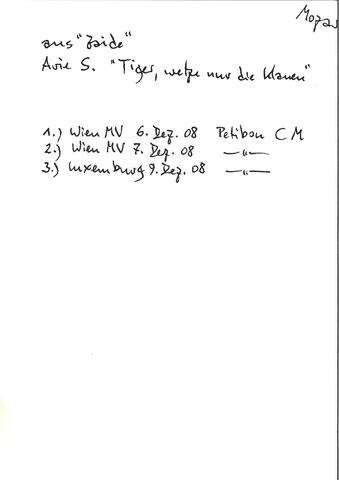 Mozar
aus "Zaide"
Arie S. "Tiger, wetze nur die Klauen"
1.) Wien MV 6. Dez. 08 Petibon C M
2.) Wien MV 7. Dez. 08 —"—
3.) Luxemburg 9. Dez. 08 —"—